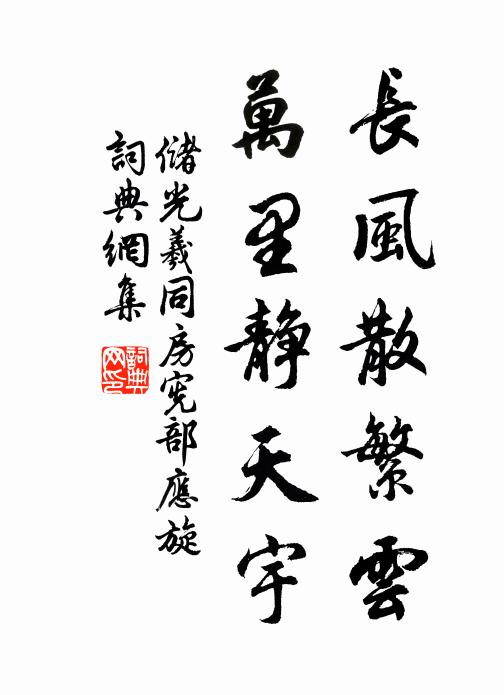 長風散繁雲
萬里靜天宇
儲光羲同房憲部應旋
詞典網集
詞典網印